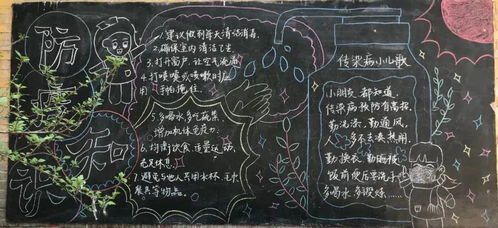 防疫
知识
1.建议做到每天清洁消毒。
2.确保室内清洁卫生
3.打开窗户,让空气流通
4.打喷嚏或咳嗽时应
用手捂住!
5.多喝水多吃蔬菜
增加机体免疫力。
6.均衡饮食 适量运动,
充足休息。
7.避免与他人共用水杯、毛巾
餐具等物品。
传染病小儿歌
小朋友 都知道,
传染病预防有高招。
勤洗澡、勤通风,
人多不去凑热闹。
勤换衣、勤晒被
饭前便后要洗手
多喝水多锻炼……